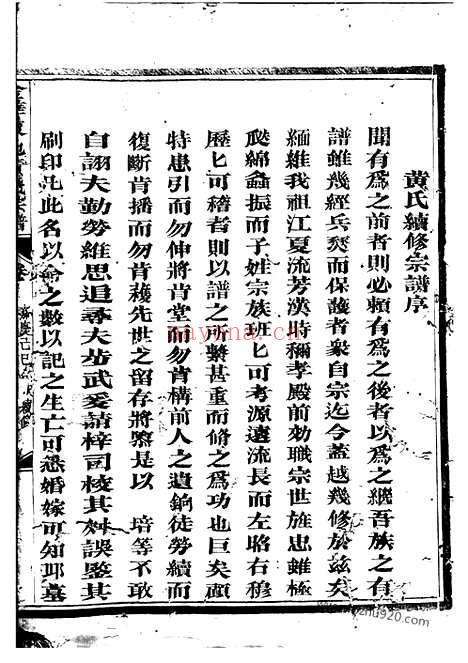 黄氏續修宗譜序
聞有爲之前者則必頼有爲之後者以爲之繼吾族之有
譜雖幾經兵燹而保護者衆自宗迄今蓋越幾修於兹矣
緬維我祖江夏流芳漢時稱孝殿前効職宗世旌忠雖極
瓞綿螽振而子姓宗族班匕可考源遠流長而左昭右穆
歷匕可稽者則以譜之所繫甚重而脩之爲功也巨矣顧
特患引而勿伸將肯堂而勿肯構前人之遺銅徒勞續而
復斷肯播而勿肯穫先世之留存將繄是以 培等不敢
自詡夫勤勞維思追尋夫步武爰請梓司校其舛誤鑒其
刷印凡此名以命之數以記之生亡可悉婚嫁可知邱墓
卷
nayona.cn
www.yizhu920.com